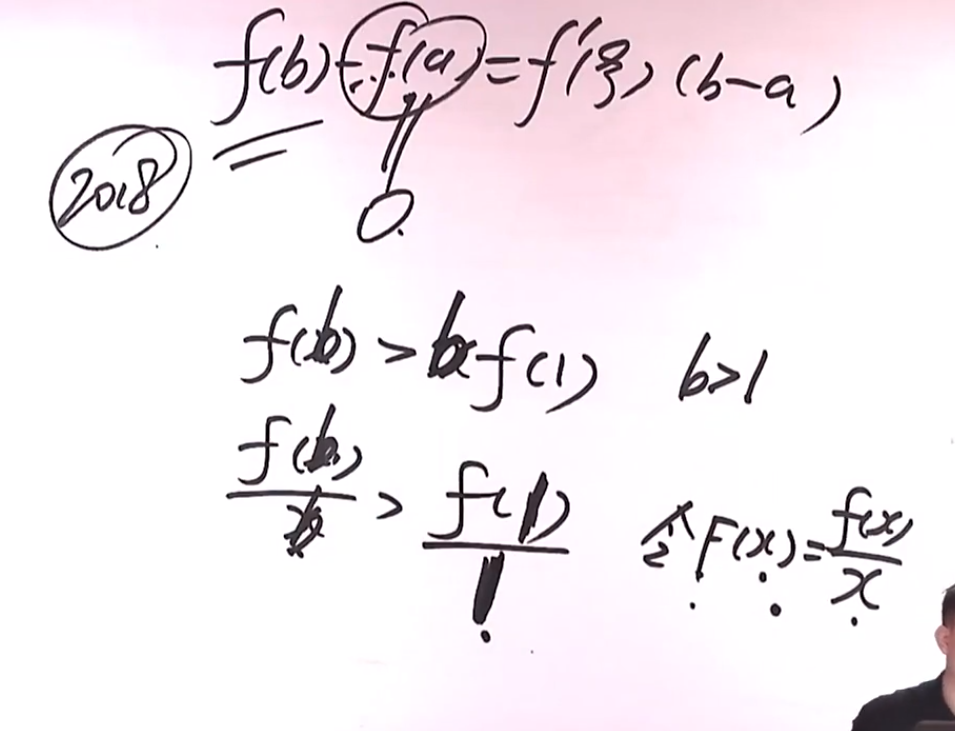 f(b)-f(a)=f'(ξ)(b-a)
2018
0.
f(b)>bf(1) b>1
f(b)/b > f(1)/1 令F(x)=f(x)/x